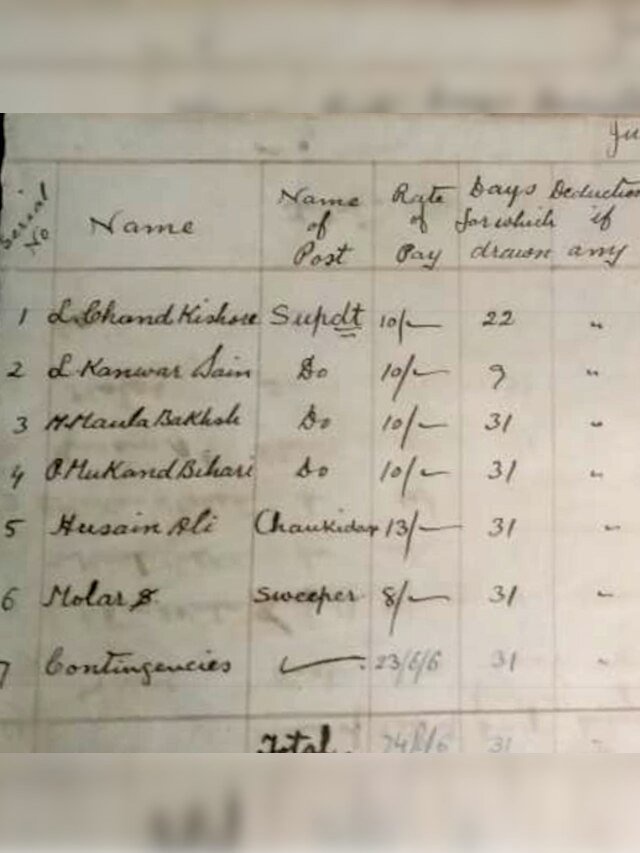 Ju
Serial No Name Name of Post Rate of Pay Days for which drawn Deduction if any
1 L. Chand Kishore Supdt 10/— 22 "
2 L Kanwar Sain Do 10/— 9 "
3 M. Maula Bakhsh Do 10/— 31 "
4 P. Mukand Bihari Do 10/— 31 "
5 Husain Ali Chaukidar 13/— 31 "
6 Molar Sweeper 8/— 31 "
7 Contingencies 23/6/6 31 "
Total 31 "